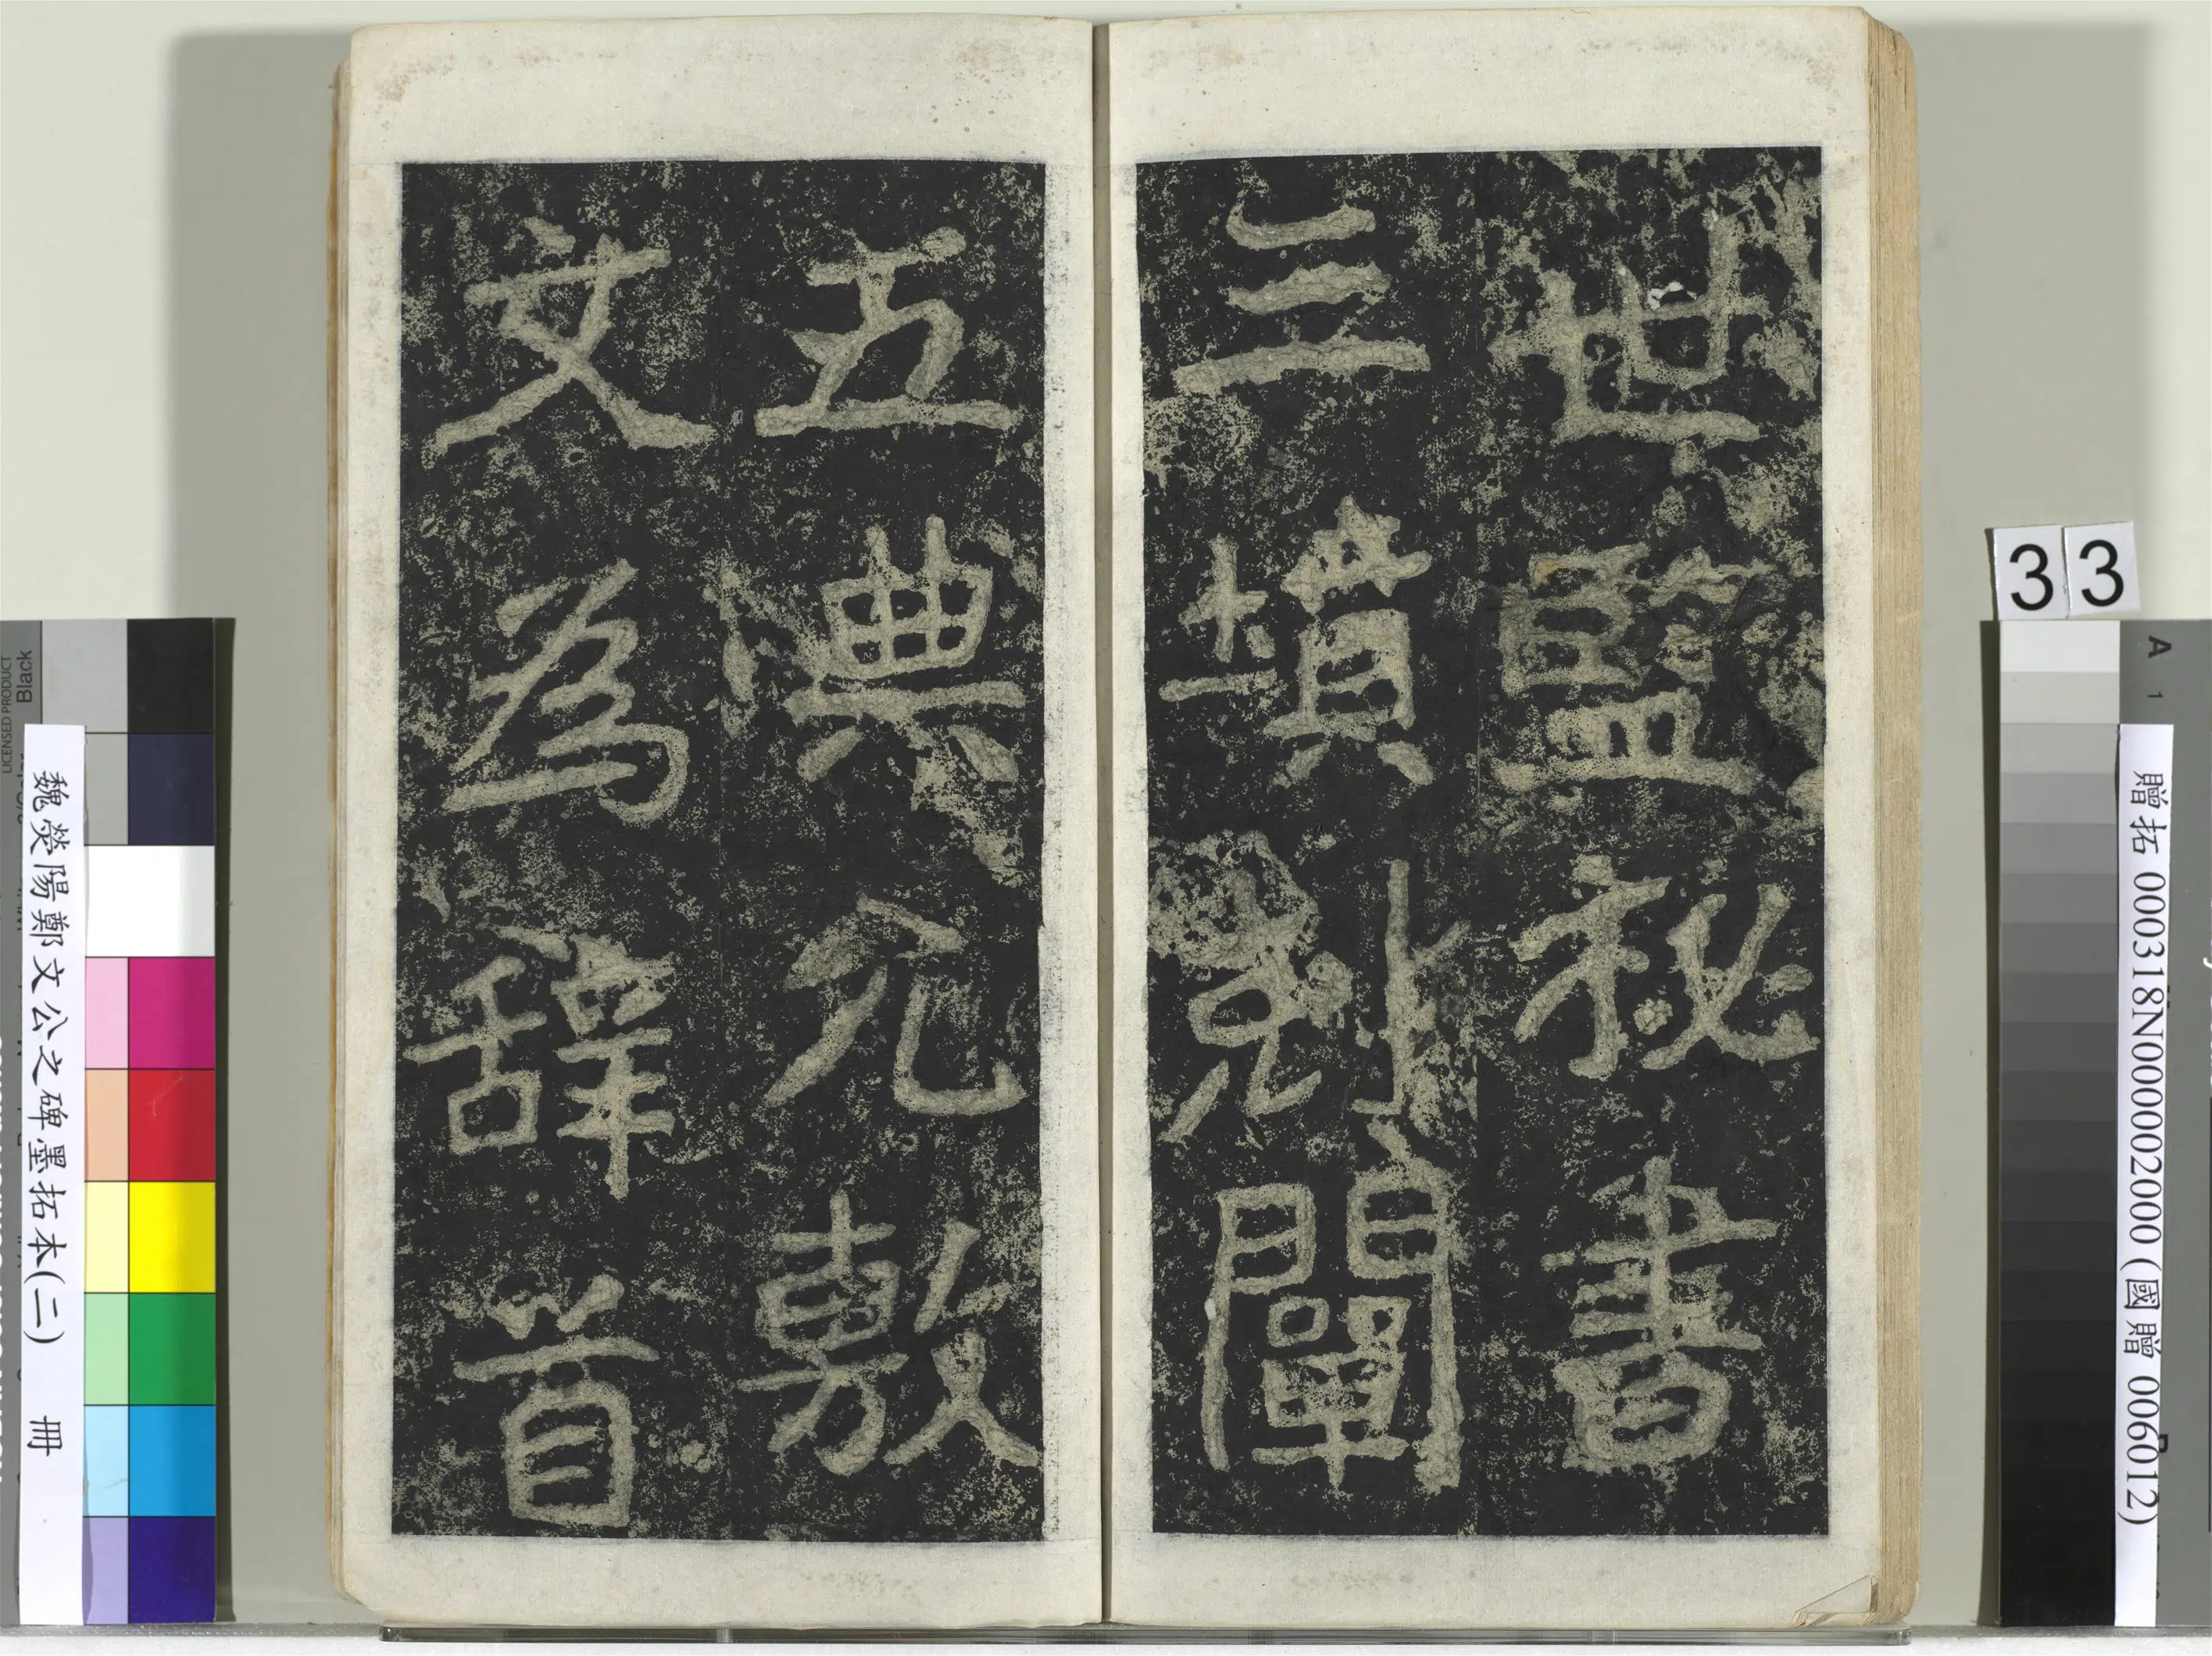 世監秘書
三墳剋闡
五典允敷
文為辭首
33
贈拓 000318N000002000 (國贈 006012)
魏熒陽鄭文公之碑墨拓本(二) 冊
A 1
LICENSED PRODUCT
Black